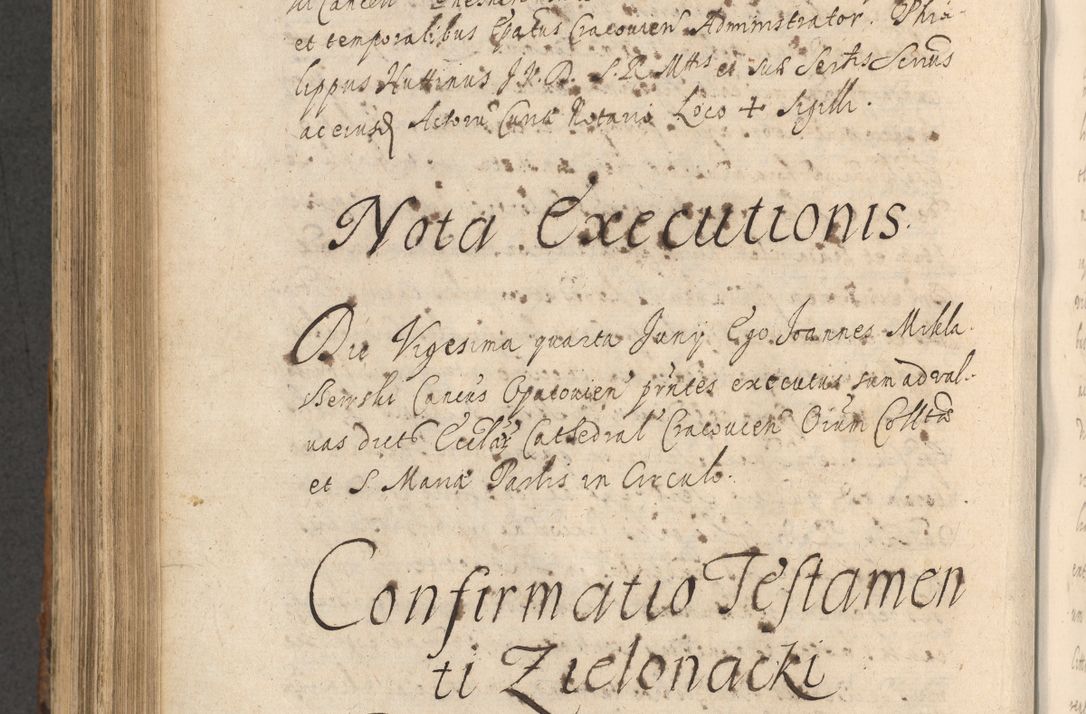 et temporalibus Epatus Cracovien Administrator. Phi-
lippus Huttinus J.V.D. S.R.Mttis et Suæ Sertis Scrius
ac eiusd Actorũ Curiæ Notario Loco + Sigilli.
Nota Executionis.
Die Vigesima quarta Junij Ego Joannes Mikla-
szewski Cancus Opatovien prntes executus sum ad val-
vas dicto Ecclæ Cathedral Cracovien Oium
et S Mariæ in Circulo.
Confirmatio Testamen
ti Zielonacki